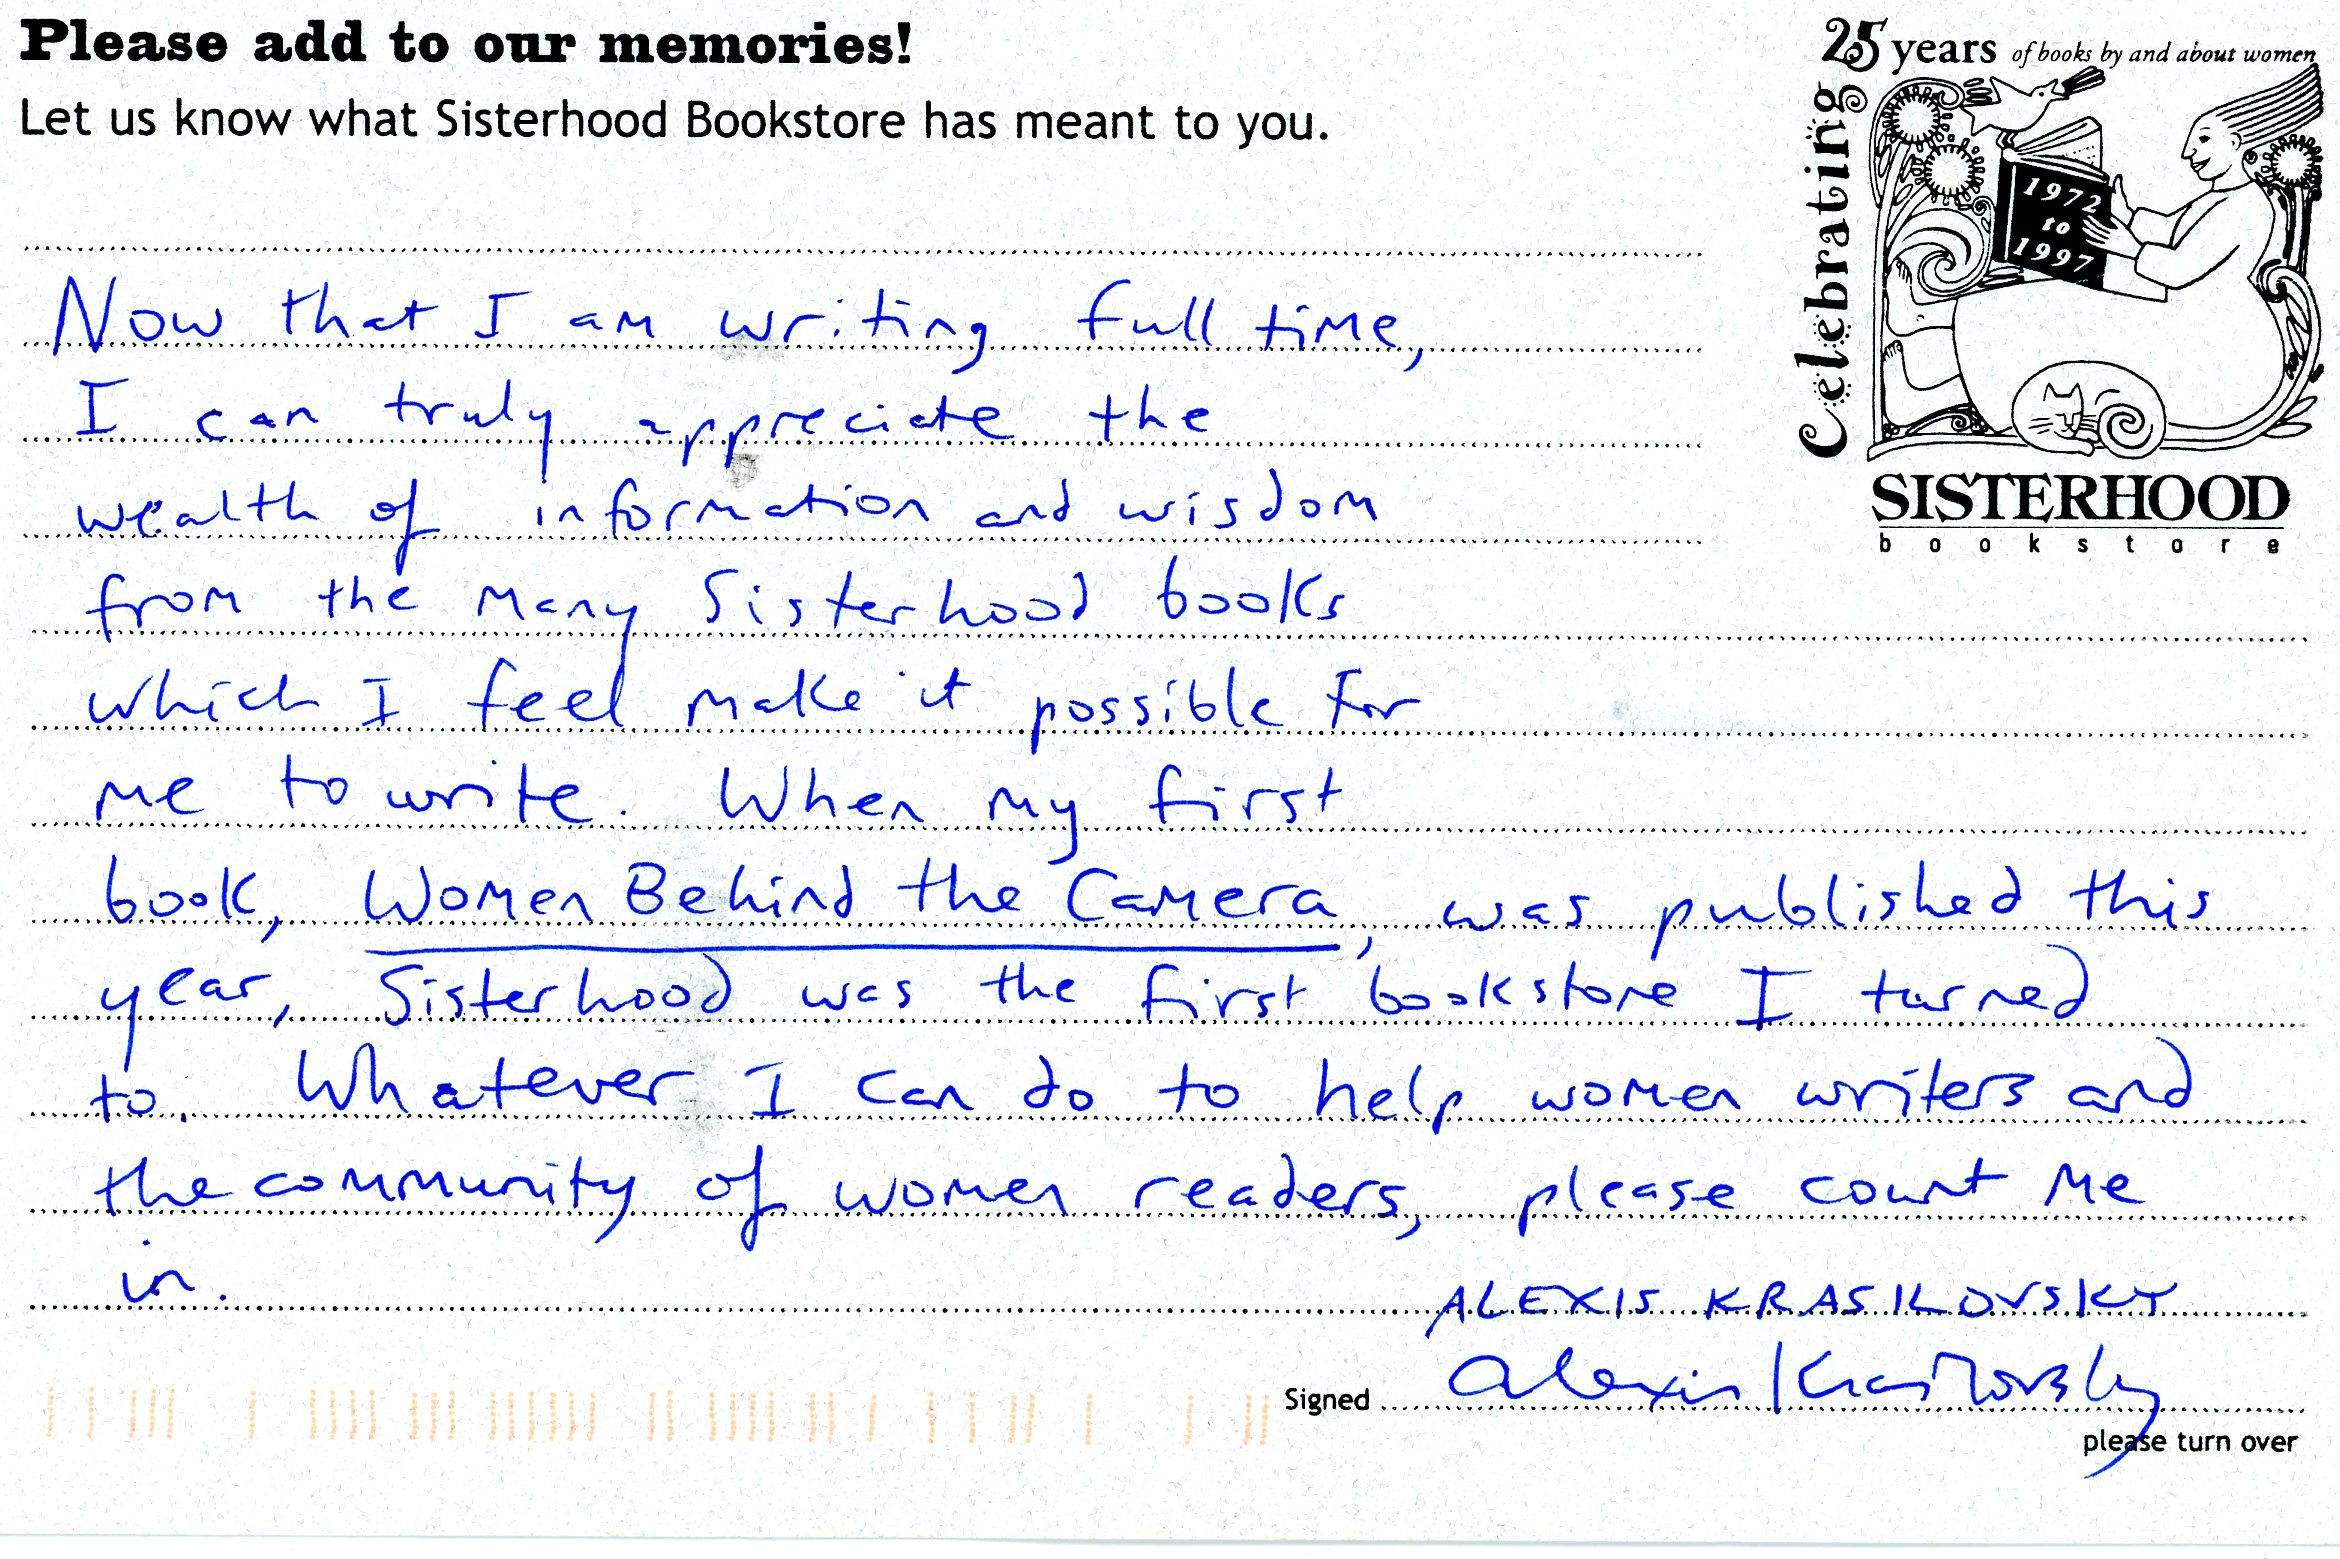 Please add to our memories!
Let us know what Sisterhood Bookstore has meant to you.
25 years of books by and about women
Celebrating
1972
to
1997
SISTERHOOD
bookstore
Now that I am writing full time,
I can truly appreciate the
wealth of information and wisdom
from the many Sisterhood books
which I feel make it possible for
me to write. When my first
book, Women Behind the Camera, was published this
year, Sisterhood was the first bookstore I turned
to. Whatever I can do to help women writers and
the community of women readers, please count me
in.
ALEXIS KRASILOVSKY
Signed Alexis Krasilovsky
please turn over